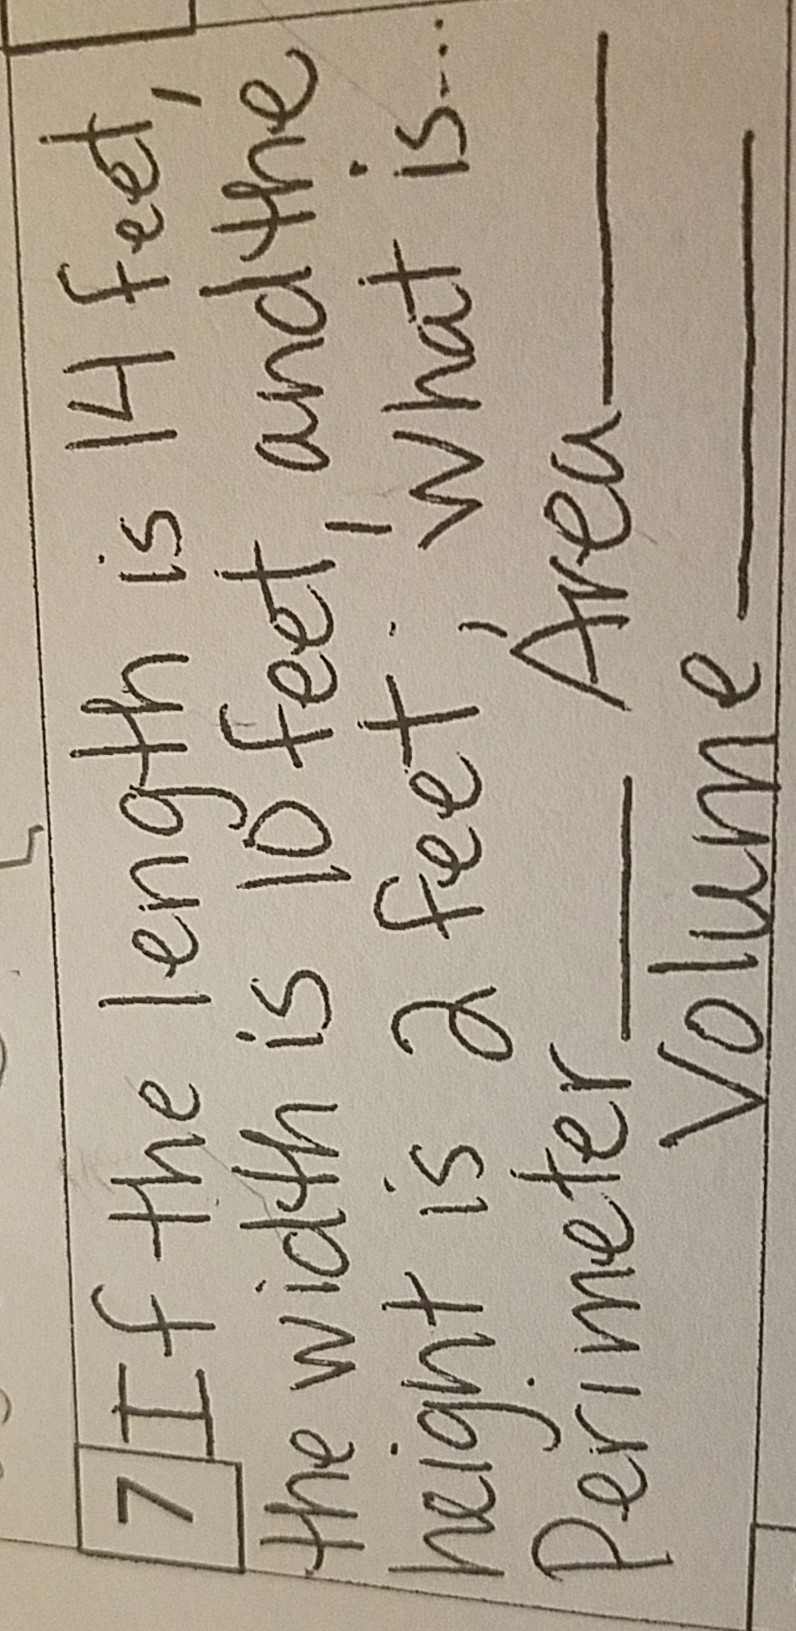 7 If the length is 14 feet,
the width is 10 feet, and the
height is 2 feet, what is...
Perimeter____ Area____
Volume____